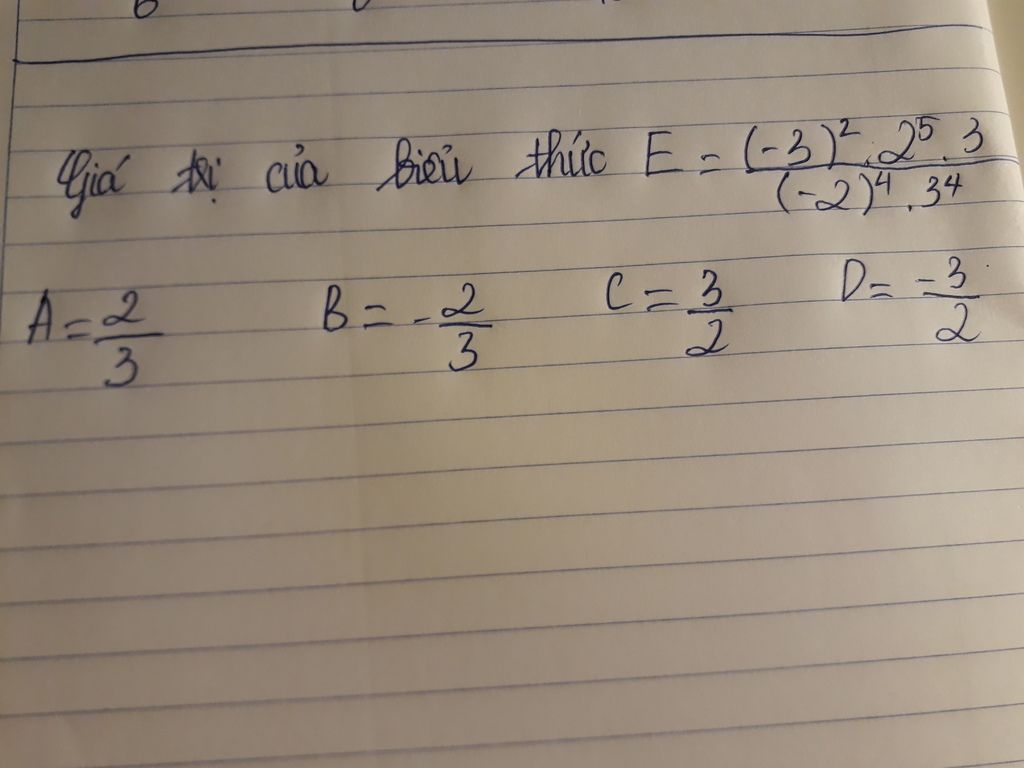 Giá trị của biểu thức E = \frac{(-3)^2 . 2^5 . 3}{(-2)^4 . 3^4}
A = \frac{2}{3} B = -\frac{2}{3} C = \frac{3}{2} D = \frac{-3}{2}